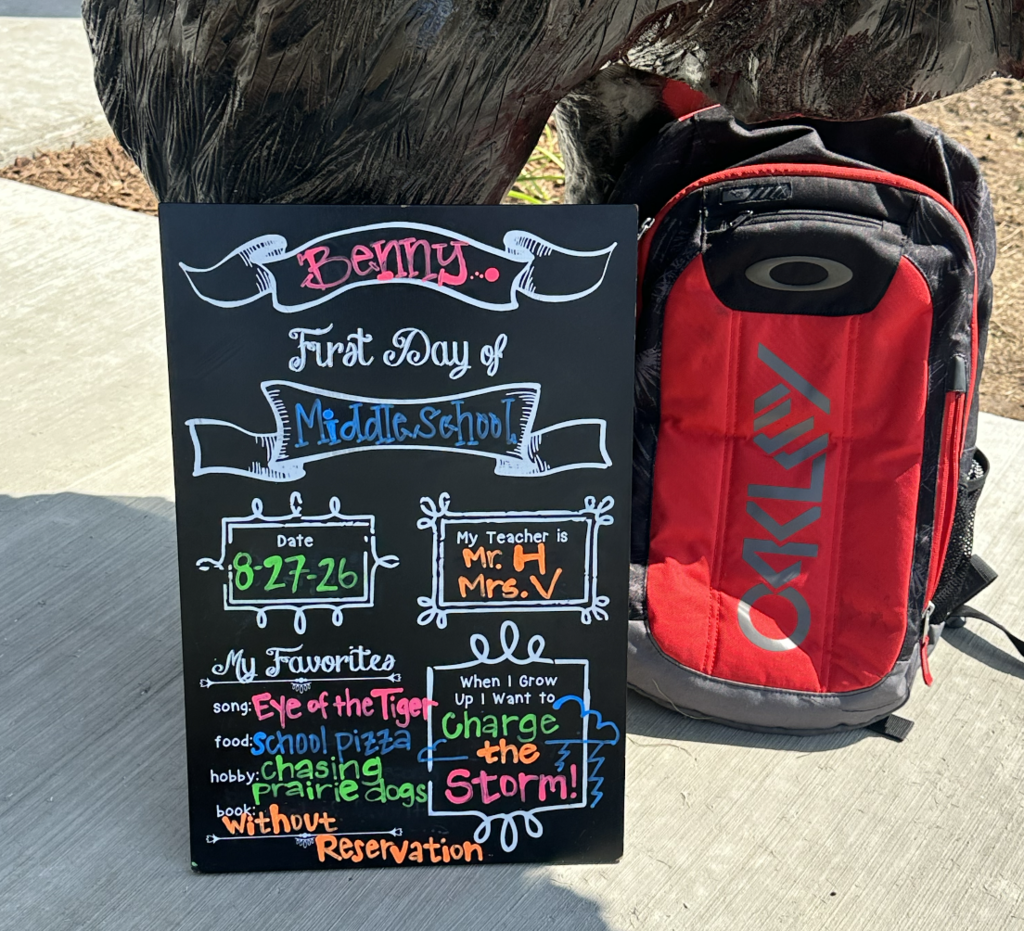 Benny...
First Day of
Middle School
Date
8-27-26
My Teacher is
Mr. H
Mrs. V
My Favorites
song: Eye of the Tiger
food: school pizza
hobby: chasing
prairie dogs
book:
Without
Reservation
When I Grow
Up I Want to
Charge
the
Storm!
OAKLEY